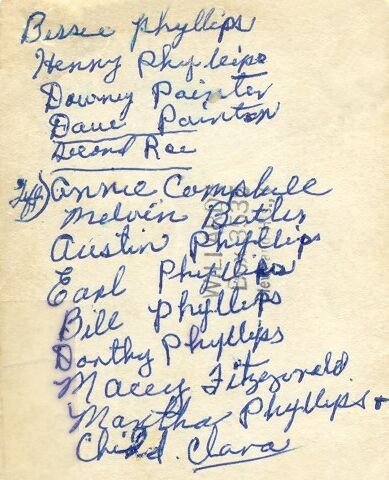 Bessie Phyllips
Henny Phyllips
Downey Painter
Dave Painton
Second Row
Annie Campbell
Melvin Butler
Austin Phyllips
Earl Phyllips
Bill Phyllips
Dorthy Phyllips
Macey Fitzgerald
Martha Phyllips +
Child. Clara